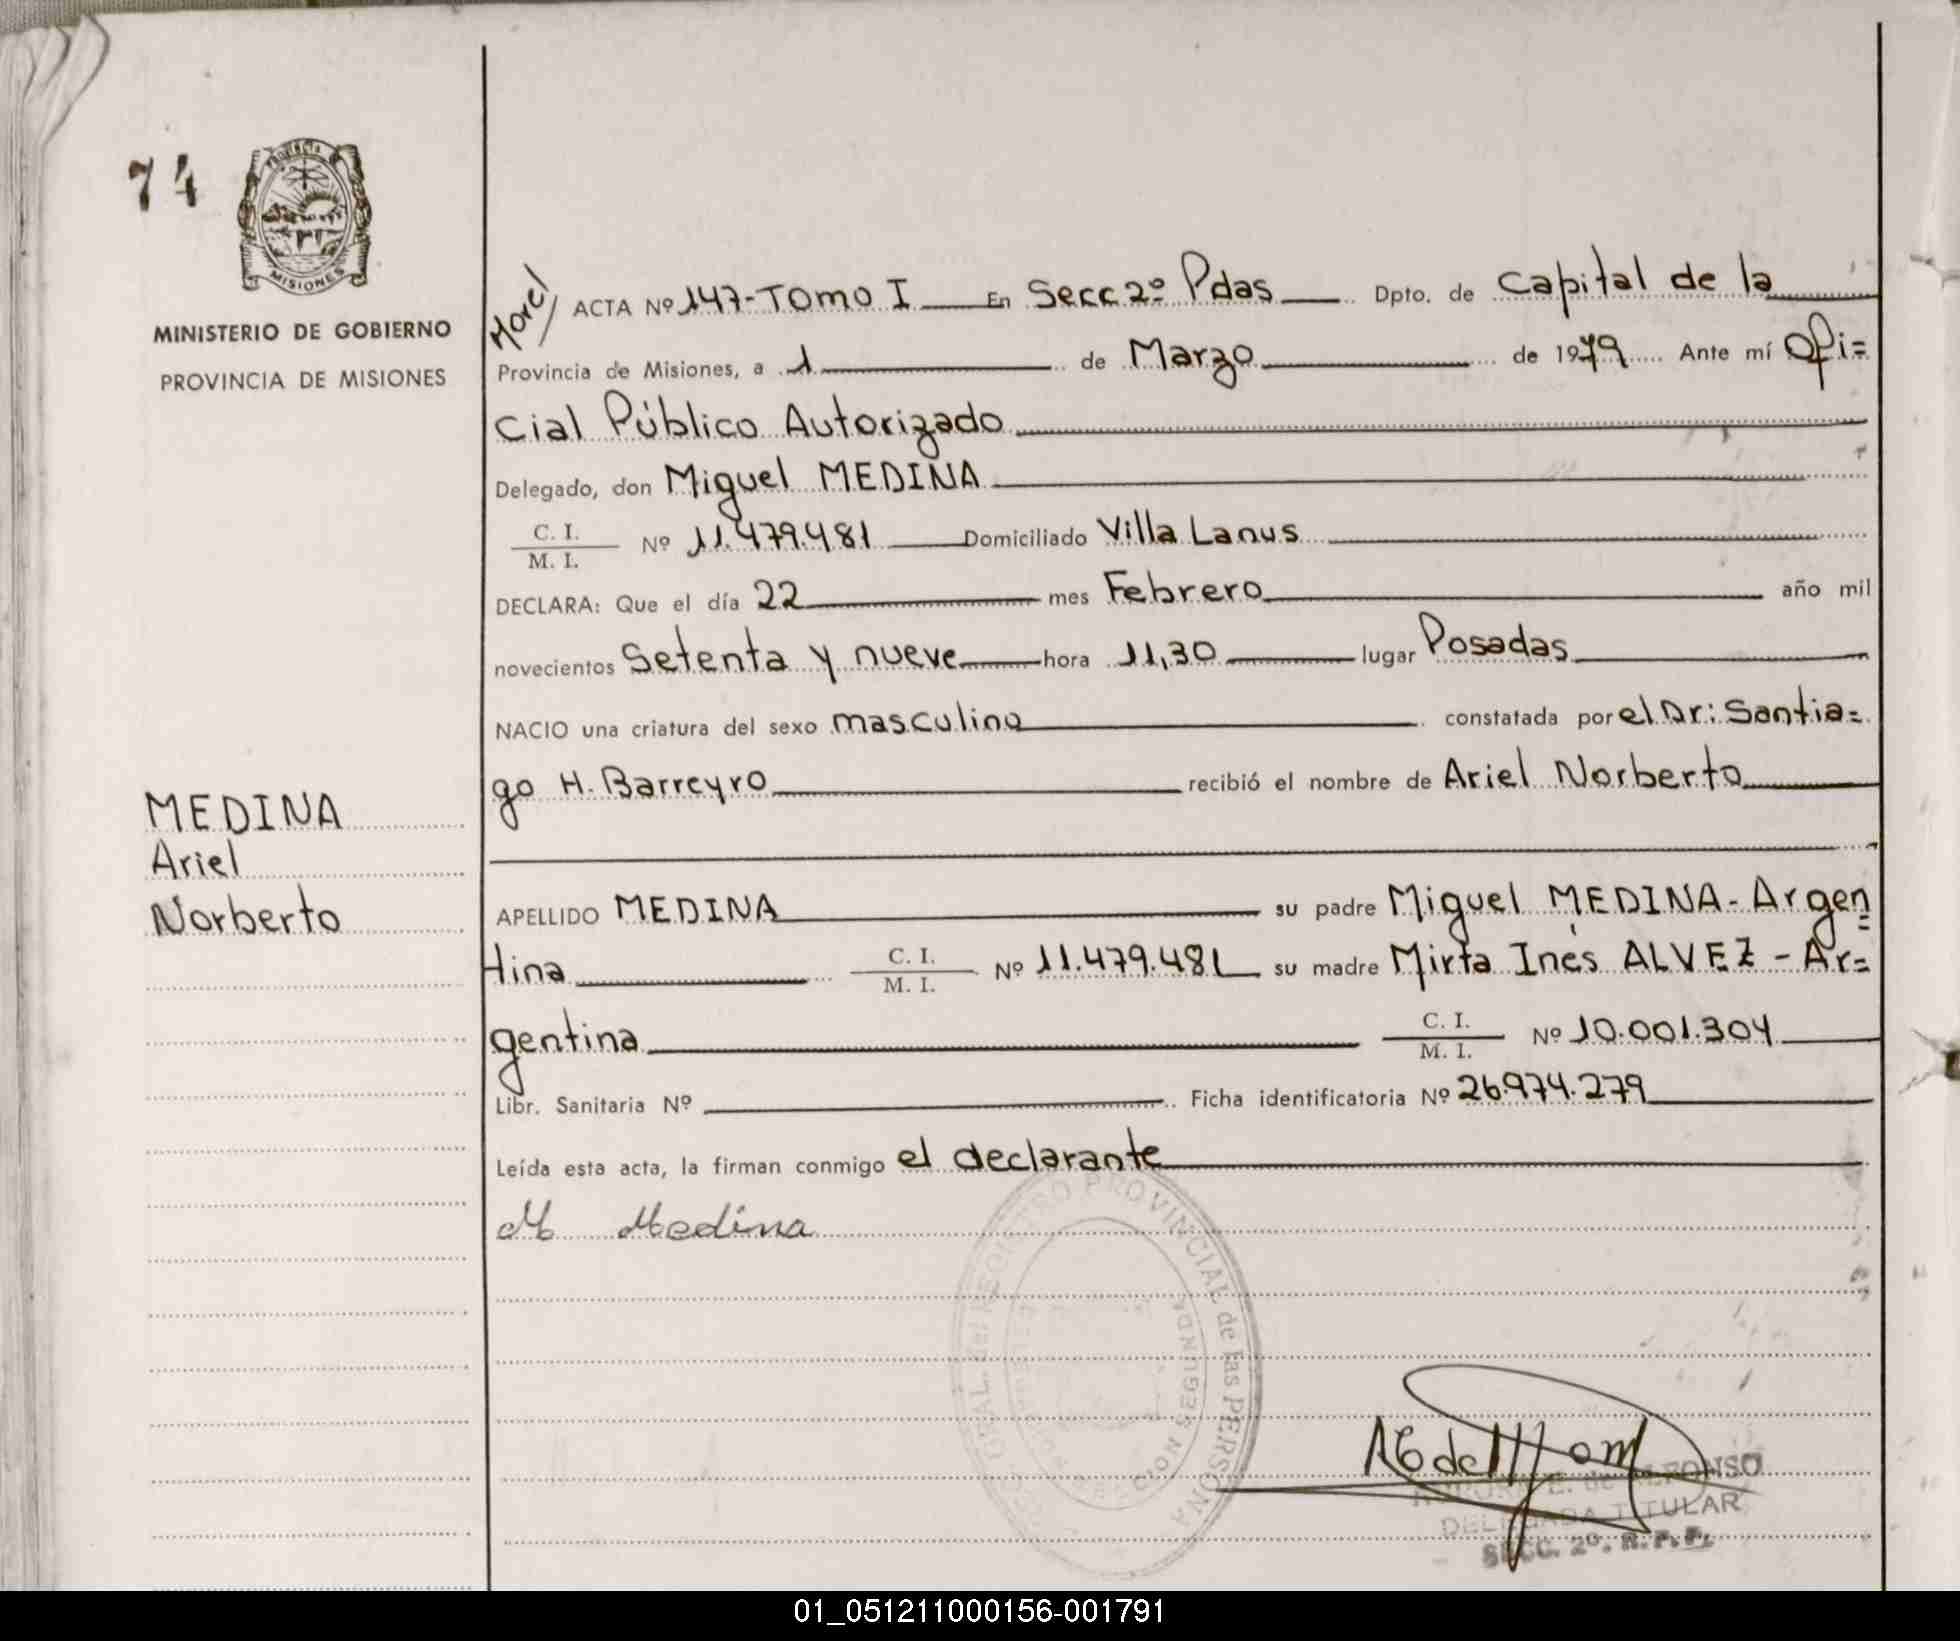 74
PROVINCIA DE
MISIONES
MINISTERIO DE GOBIERNO
PROVINCIA DE MISIONES
MEDINA
Ariel
Norberto
Morel
ACTA Nº 147-Tomo I En Secc 2º Pdas Dpto. de Capital de la
Provincia de Misiones, a 1 de Marzo de 1979 Ante mí Ofi=
cial Público Autorizado
Delegado, don Miguel MEDINA
C. I.
M. I. Nº 11.479.481 Domiciliado Villa Lanus
DECLARA: Que el día 22 mes Febrero año mil
novecientos Setenta y nueve hora 11,30 lugar Posadas
NACIO una criatura del sexo masculino constatada por el Dr: Santia=
go H. Barreyro recibió el nombre de Ariel Norberto
APELLIDO MEDINA su padre Miguel MEDINA - Argen=
tina C. I. M. I. Nº 11.479.481 su madre Mirta Inés ALVEZ - Ar=
gentina C. I. M. I. Nº 10.001.304
Libr. Sanitaria Nº Ficha identificatoria Nº 26.974.279
Leída esta acta, la firman conmigo el declarante
M Medina
GRAL. del REGISTRO PROVINCIAL de las PERSONAS
SEGUNDA
E. de ALFONSO
DELEGADA TITULAR
SECC. 2º. R. P. P.
01_051211000156-001791